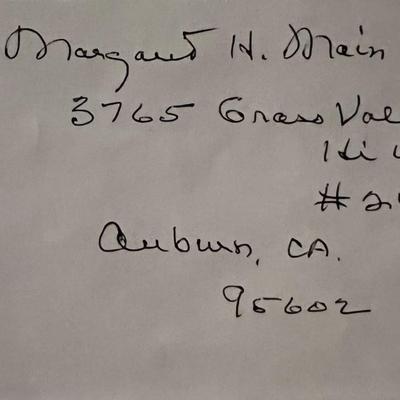 Margaret H. Main
3765 Grass Val
Hi
# 2
Auburn, CA.
95602